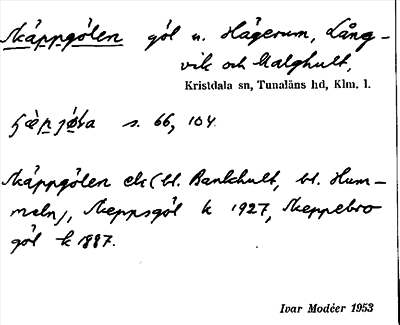 Skäppgölen göl u. Hägerum, Lång-
vik och Malghult,
Kristdala sn, Tunaläns hd, Klm. l.
s. 66, 104
Skäppgölen ek (bl. Bankhult, bl. Hum-
meln), Skeppsgöl k 1927, Skeppebro
göl k 1887.
Ivar Modéer 1953